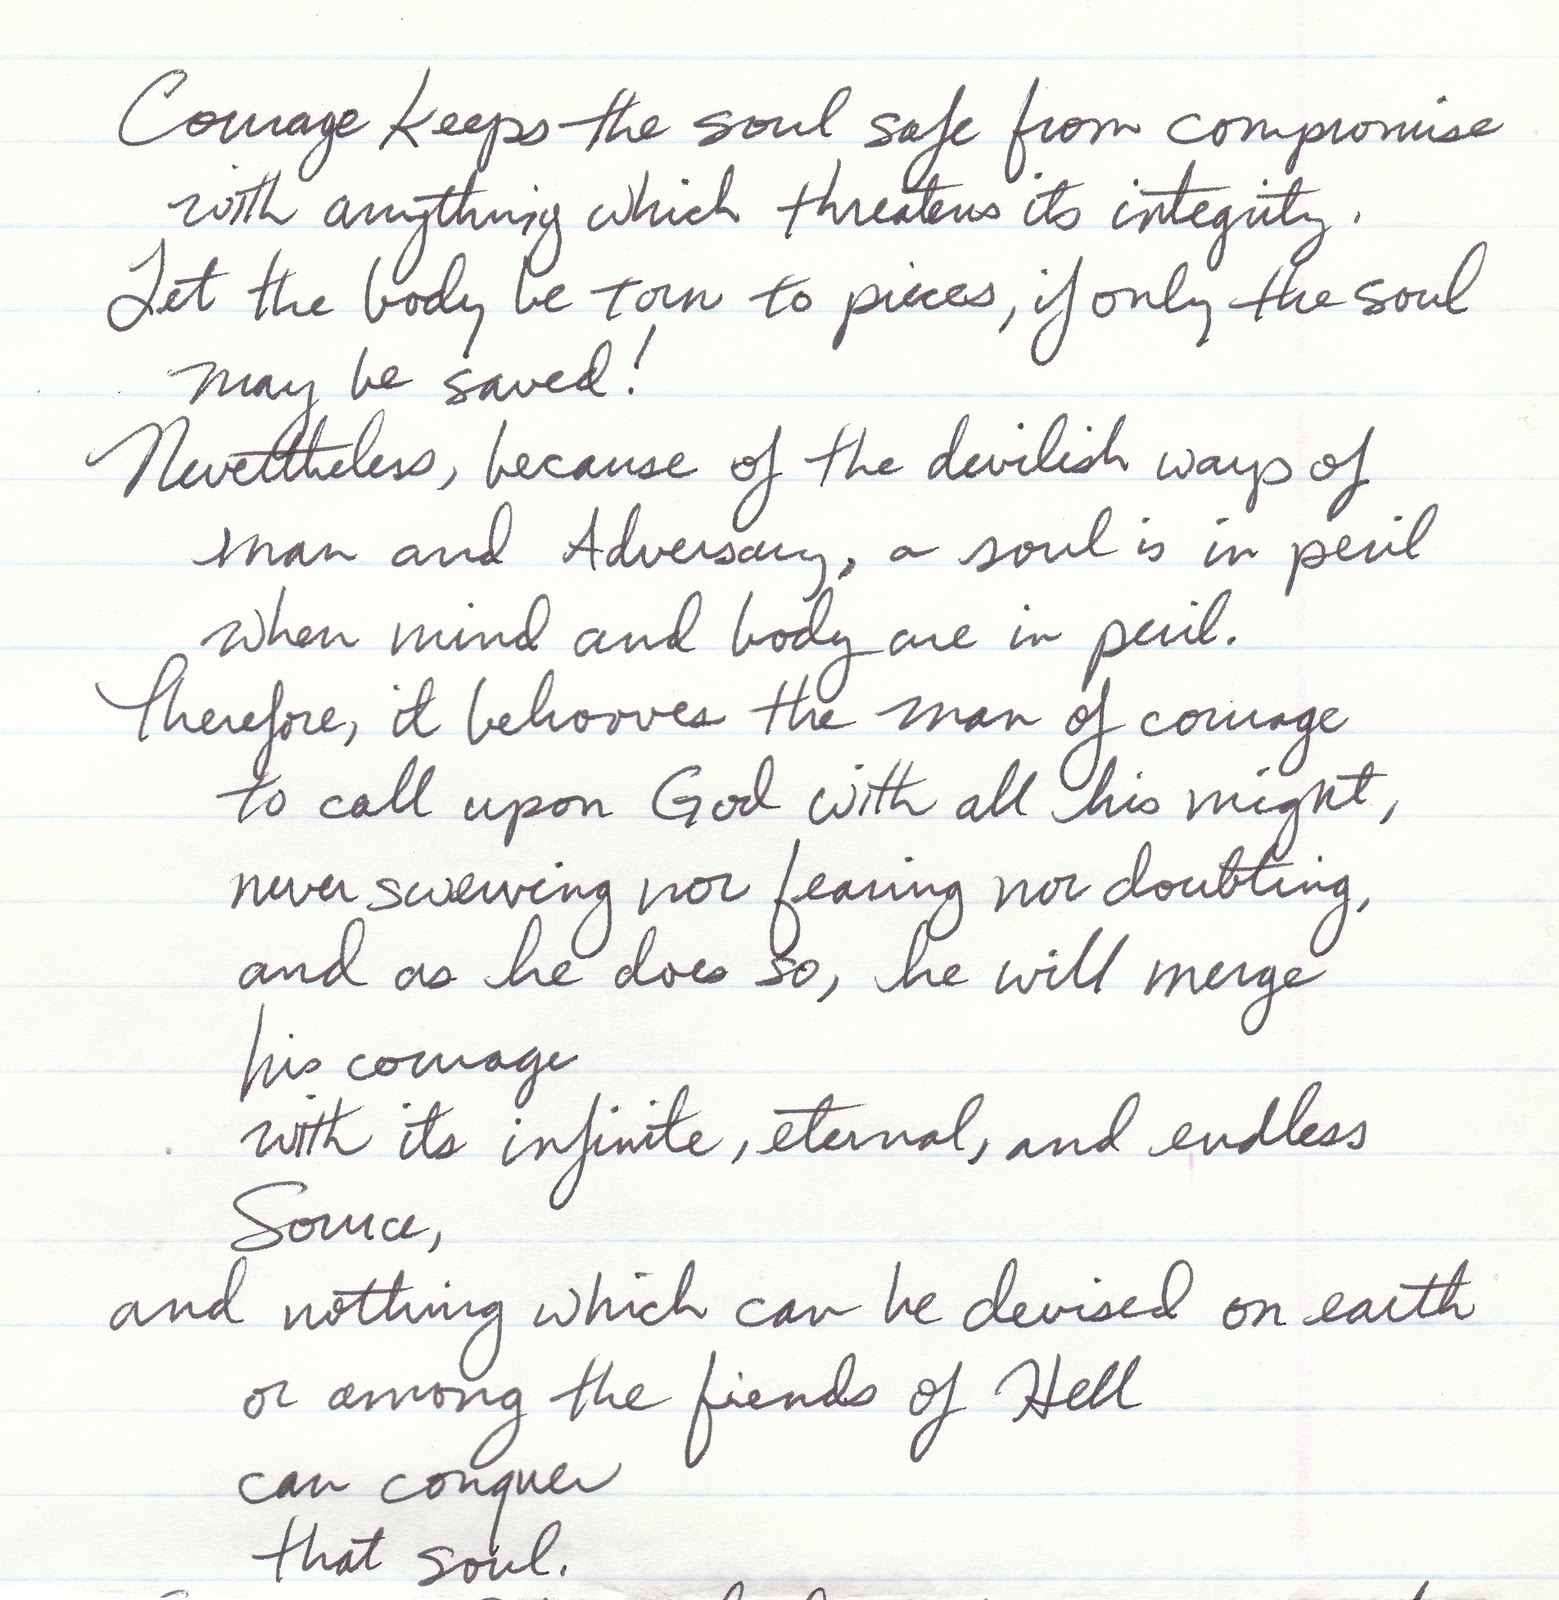 Courage keeps the soul safe from compromise
with anything which threatens its integrity.
Let the body be torn to pieces, if only the soul
may be saved!
Nevertheless, because of the devilish ways of
man and Adversary, a soul is in peril
when mind and body are in peril.
Therefore, it behooves the man of courage
to call upon God with all his might,
never swerving nor fearing nor doubting,
and as he does so, he will merge
his courage
with its infinite, eternal, and endless
Source,
and nothing which can be devised on earth
or among the fiends of Hell
can conquer
that soul.